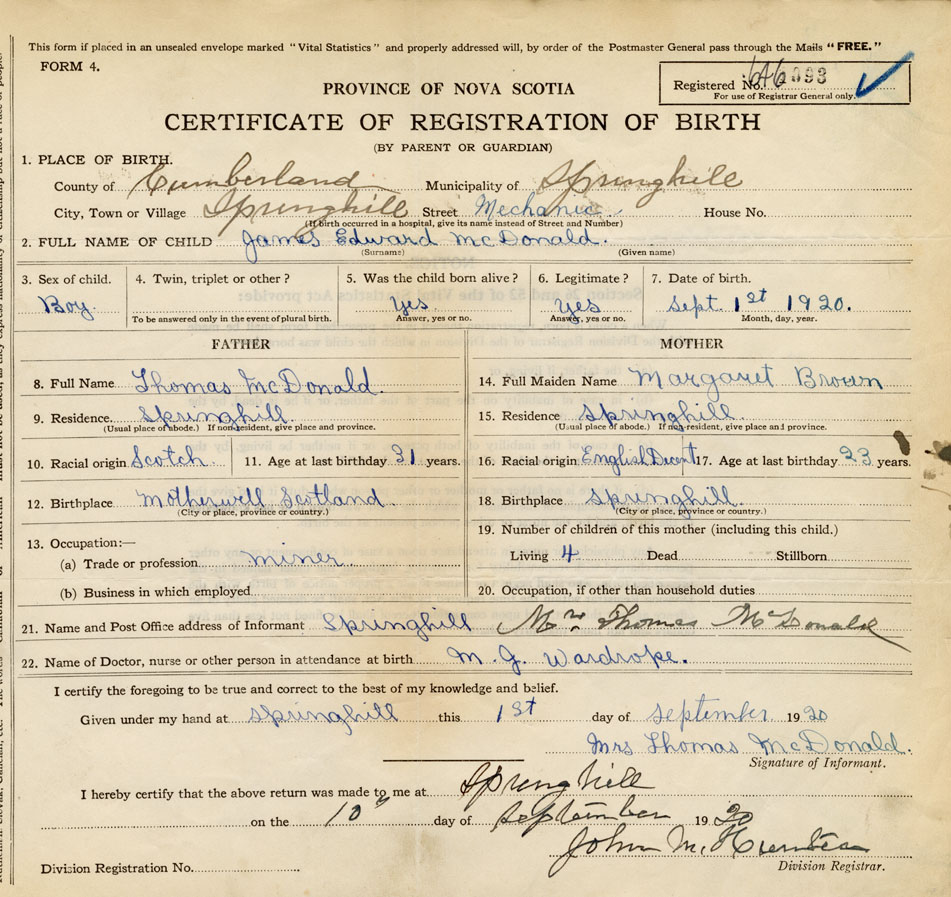 This form if placed in an unsealed envelope marked "Vital Statistics" and properly addressed will, by order of the Postmaster General pass through the Mails "FREE."
FORM 4.
Registered No. 093
For use of Registrar General only.
PROVINCE OF NOVA SCOTIA
CERTIFICATE OF REGISTRATION OF BIRTH
(BY PARENT OR GUARDIAN)
1. PLACE OF BIRTH.
County of Cumberland Municipality of Springhill
City, Town or Village Springhill Street Mechanic House No.
(If birth occurred in a hospital, give its name instead of Street and Number)
2. FULL NAME OF CHILD James Edward McDonald.
(Surname) (Given name)
3. Sex of child. 4. Twin, triplet or other? 5. Was the child born alive? 6. Legitimate? 7. Date of birth.
Boy. Yes. Yes Sept. 1st 1920.
To be answered only in the event of plural birth. Answer, yes or no. Answer, yes or no. Month, day, year.
FATHER
8. Full Name Thomas McDonald.
9. Residence. Springhill
(Usual place of abode.) If non-resident, give place and province.
10. Racial origin Scotch 11. Age at last birthday 31 years.
12. Birthplace Motherwell Scotland
(City or place, province or country.)
13. Occupation:—
(a) Trade or profession miner.
(b) Business in which employed
MOTHER
14. Full Maiden Name Margaret Brown
15. Residence Springhill.
(Usual place of abode.) If non-resident, give place and province.
16. Racial origin English Decent 17. Age at last birthday 23 years.
18. Birthplace Springhill.
(City or place, province or country.)
19. Number of children of this mother (including this child.)
Living 4 Dead Stillborn
20. Occupation, if other than household duties
21. Name and Post Office address of Informant Springhill Mrs Thomas McDonald
22. Name of Doctor, nurse or other person in attendance at birth M. G. Wardrope.
I certify the foregoing to be true and correct to the best of my knowledge and belief.
Given under my hand at Springhill this 1st day of September 1920
Mrs Thomas McDonald.
Signature of Informant.
I hereby certify that the above return was made to me at Springhill
on the 10 day of September 1920
John M. Hunter
Division Registrar.
Division Registration No.